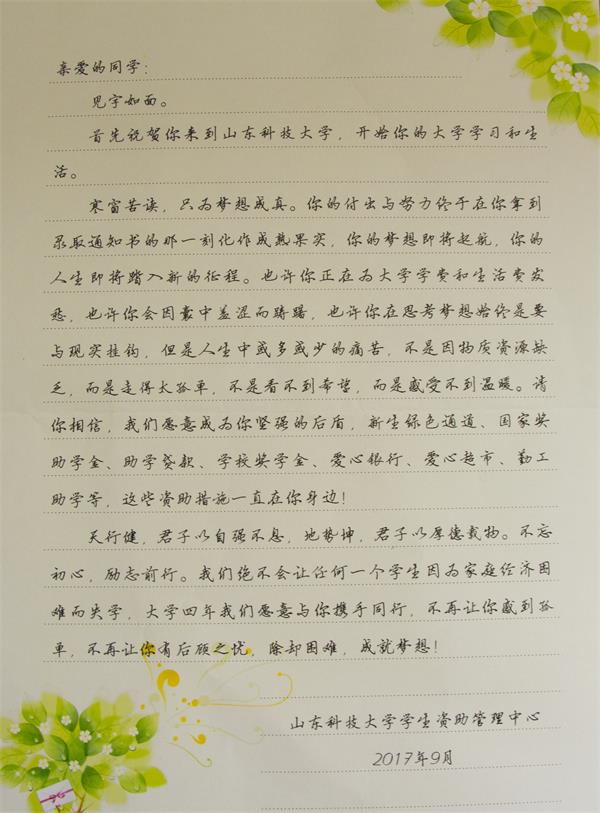 亲爱的同学：
见字如面。
首先祝贺你来到山东科技大学，开始你的大学学习和生
活。
寒窗苦读，只为梦想成真。你的付出与努力终于在你拿到
录取通知书的那一刻化作成熟果实，你的梦想即将起航，你的
人生即将踏入新的征程。也许你正在为大学学费和生活费发
愁，也许你会因囊中羞涩而踌躇，也许你在思考梦想始终是要
与现实挂钩，但是人生中或多或少的痛苦，不是因物质资源缺
乏，而是走得太孤单，不是看不到希望，而是感受不到温暖。请
你相信，我们愿意成为你坚强的后盾，新生绿色通道、国家奖
助学金、助学贷款、学校奖学金、爱心银行、爱心超市、勤工
助学等，这些资助措施一直在你身边！
天行健，君子以自强不息，地势坤，君子以厚德载物。不忘
初心，励志前行。我们绝不会让任何一个学生因为家庭经济困
难而失学，大学四年我们愿意与你携手同行，不再让你感到孤
单，不再让你有后顾之忧，除却困难，成就梦想！
山东科技大学学生资助管理中心
2017年9月